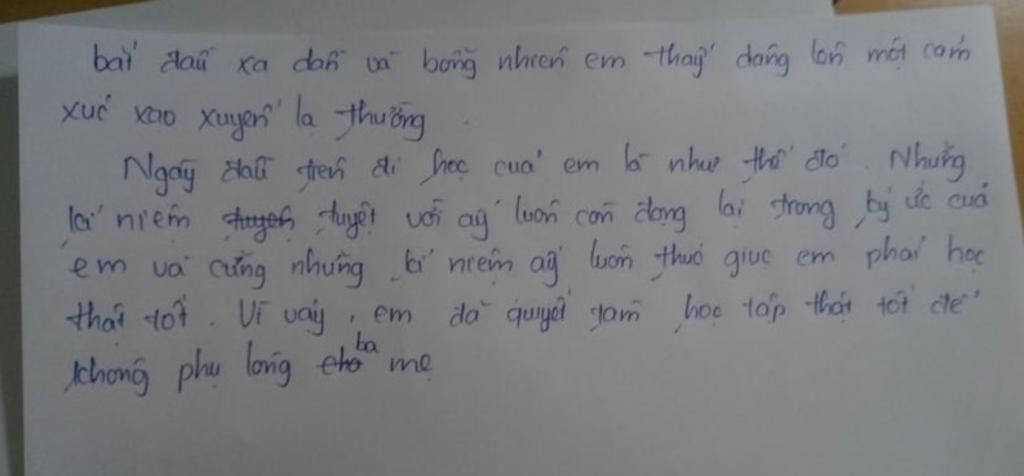 bắt đầu xa dần và bỗng nhiên em thấy dâng lên một cảm
xúc xao xuyến lạ thường.
Ngày đầu tiên đi học của em là như thế đó. Những
kỉ niệm tuyệt vời ấy luôn còn đọng lại trong ký ức của
em và cũng những kỉ niệm ấy luôn thúc giục em phải học
thật tốt. Vì vậy, em đã quyết tâm học tập thật tốt để
không phụ lòng ba mẹ